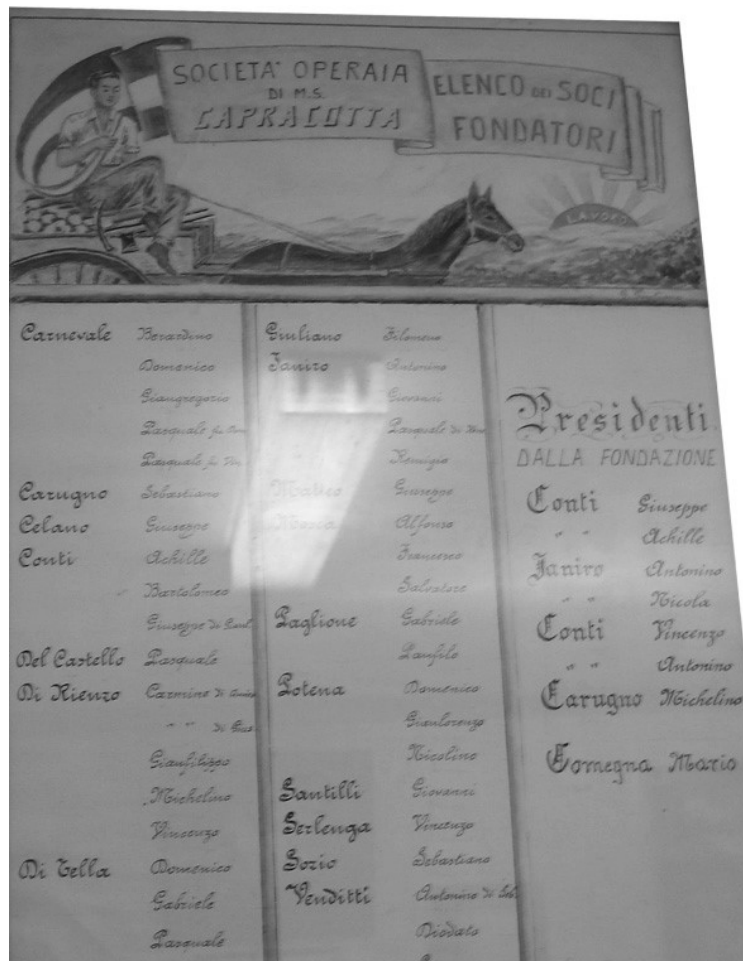 SOCIETA' OPERAIA
DI M.S.
CAPRACOTTA
ELENCO DEI SOCI
FONDATORI
LAVORO
Carnevale Berardino
Domenico
Giangregorio
Pasquale
Pasquale
Carugno Sebastiano
Celano Giuseppe
Conti Achille
" Bartolomeo
Giuseppe di Paol.
Del Castello Pasquale
Di Rienzo Carmine di
" " di Gius.
Gianfilippo
Michelino
Vincenzo
Di Tella Domenico
Gabriele
Pasquale
Giuliano Filomeno
Janiro Antonino
Giovanni
Pasquale di
Remigio
Matteo Giuseppe
Mosca Alfonso
Francesco
Salvatore
Paglione Gabriele
Panfilo
Potena Domenico
Gianlorenzo
Nicolino
Santilli Giovanni
Serlenga Vincenzo
Sozio Sebastiano
Venditti Antonino di Seb.
Diodato
Presidenti
DALLA FONDAZIONE
Conti Giuseppe
" " Achille
Janiro Antonino
" " Nicola
Conti Vincenzo
" " Antonino
Carugno Michelino
Comegna Mario